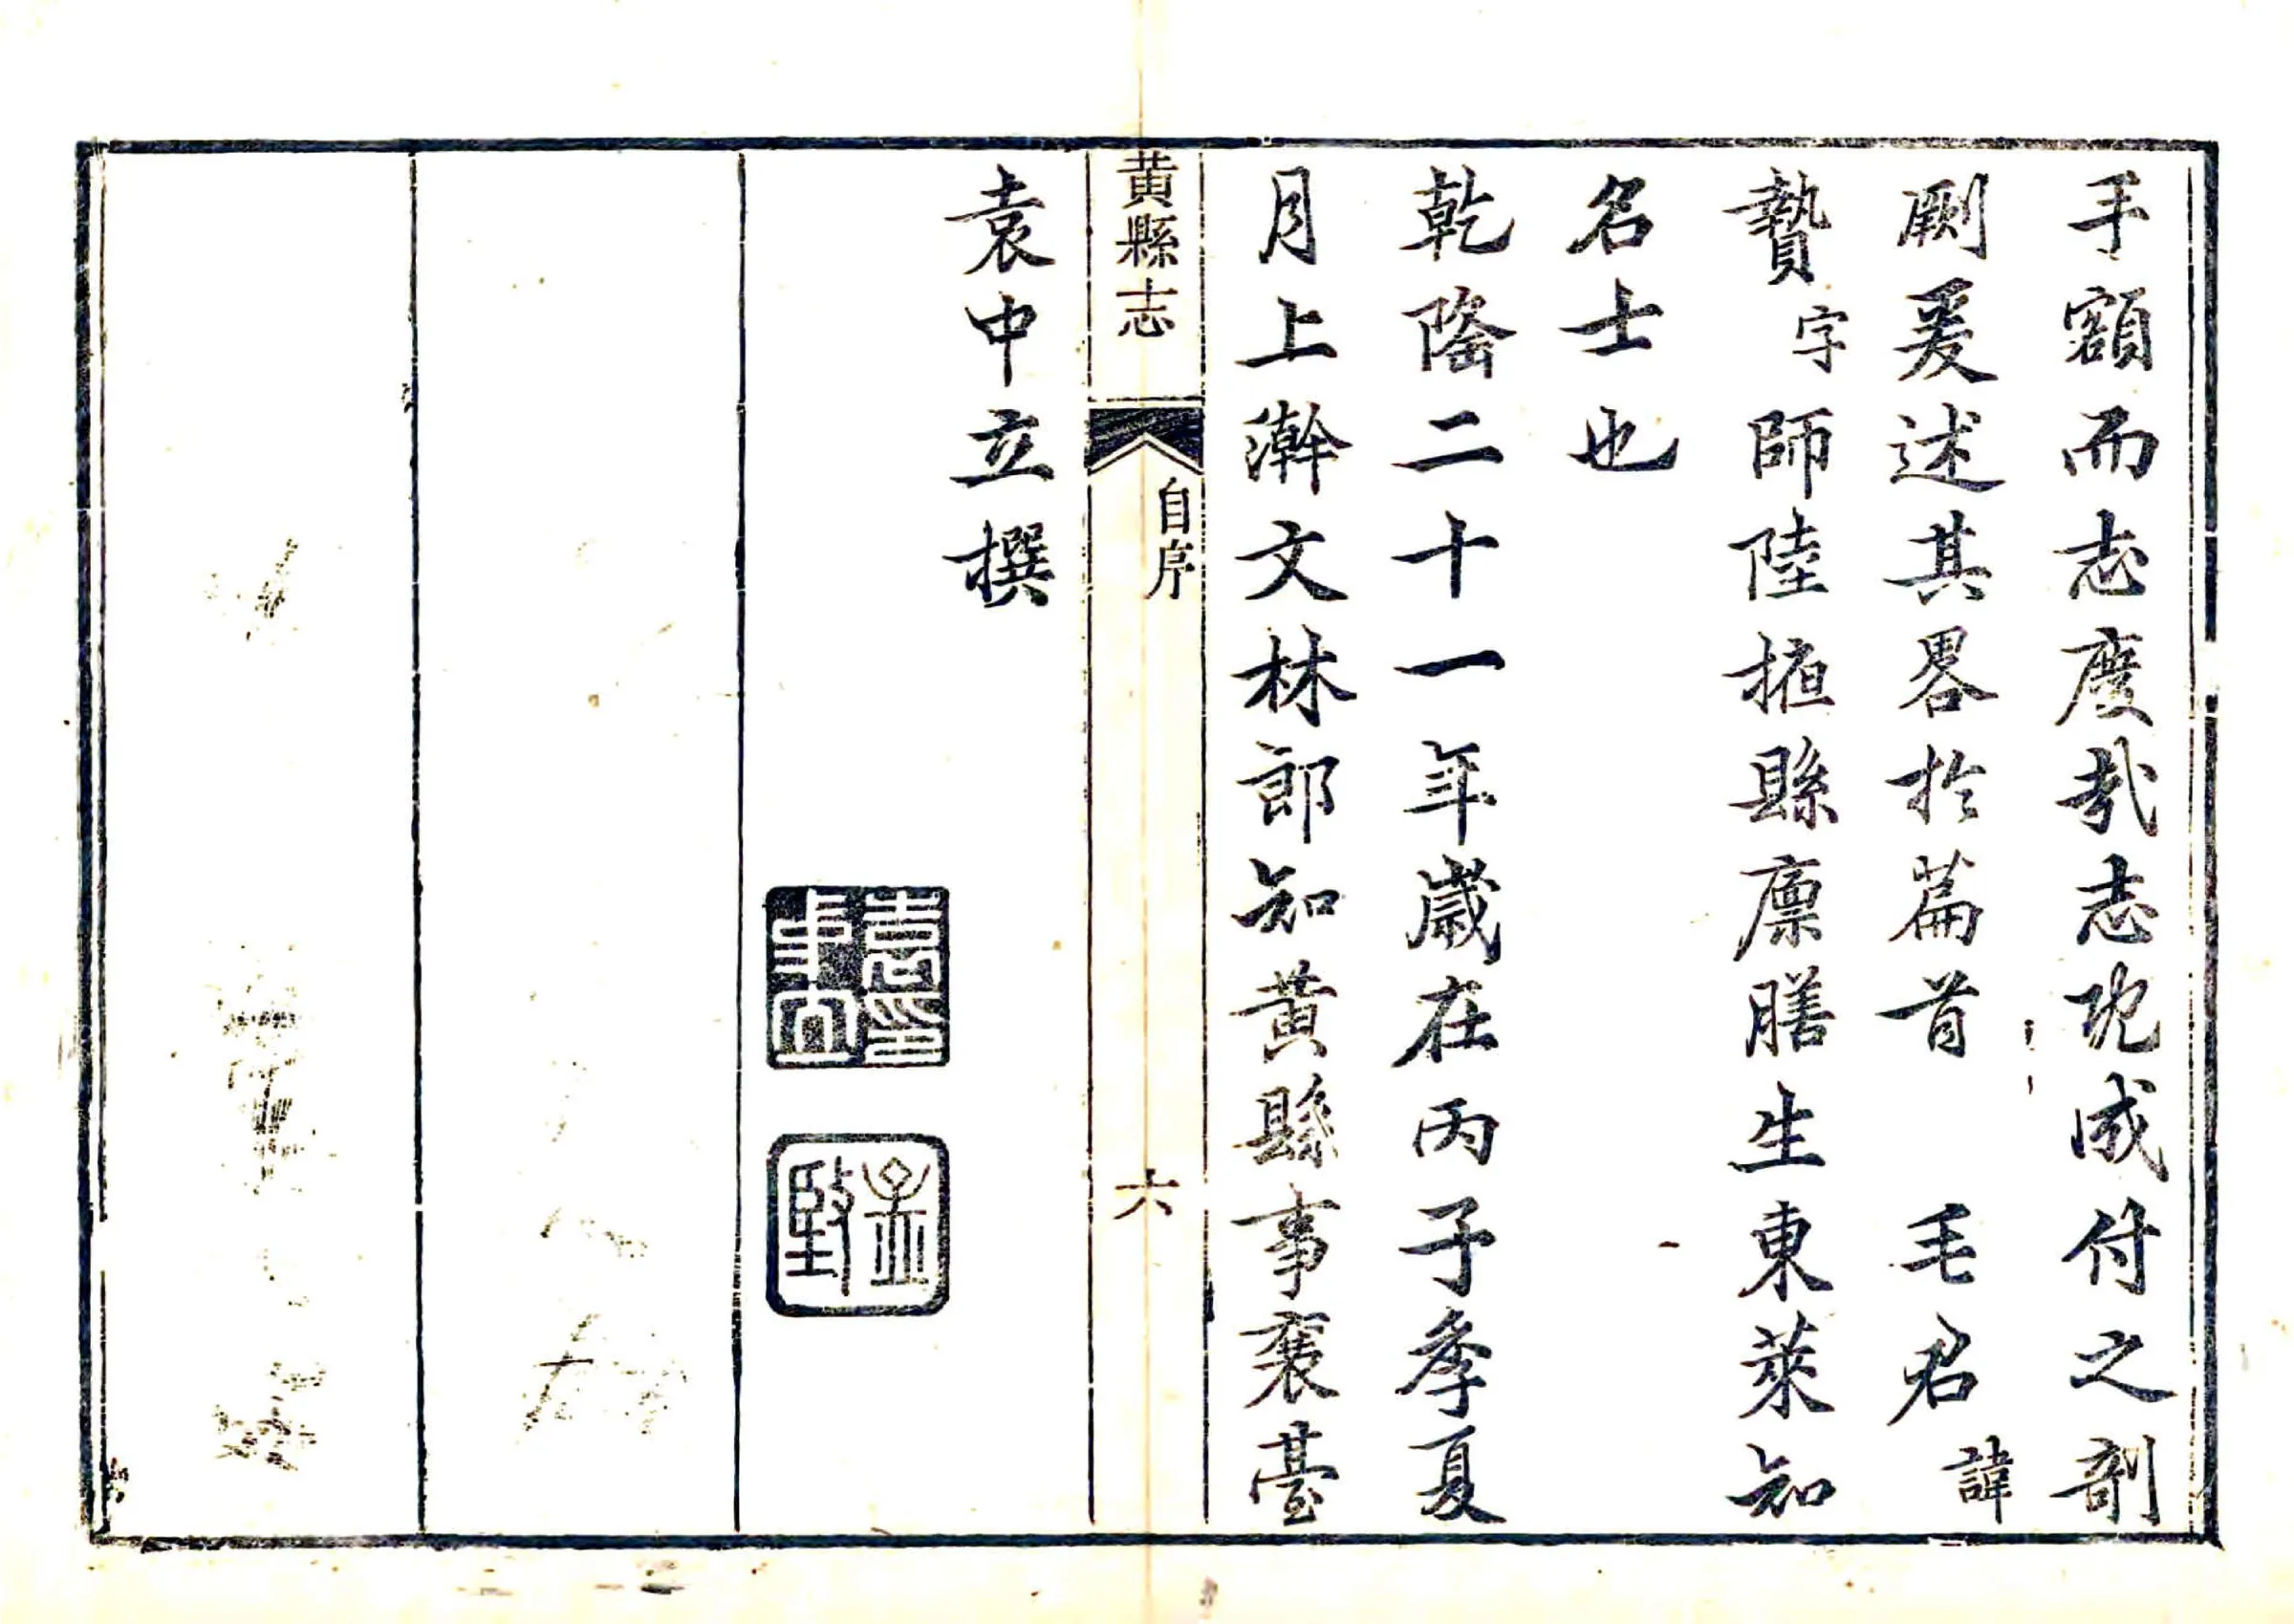 手額而志度㦲志既成付之剞
劂爰述其畧於篇首　毛君諱
贄字師陸掖縣廩膳生東萊知
名士也
乾隆二十一年歲在丙子季夏
月上澣文林郎知黃縣事襄臺
袁中立撰
黃縣志
自序
六
袁印中立